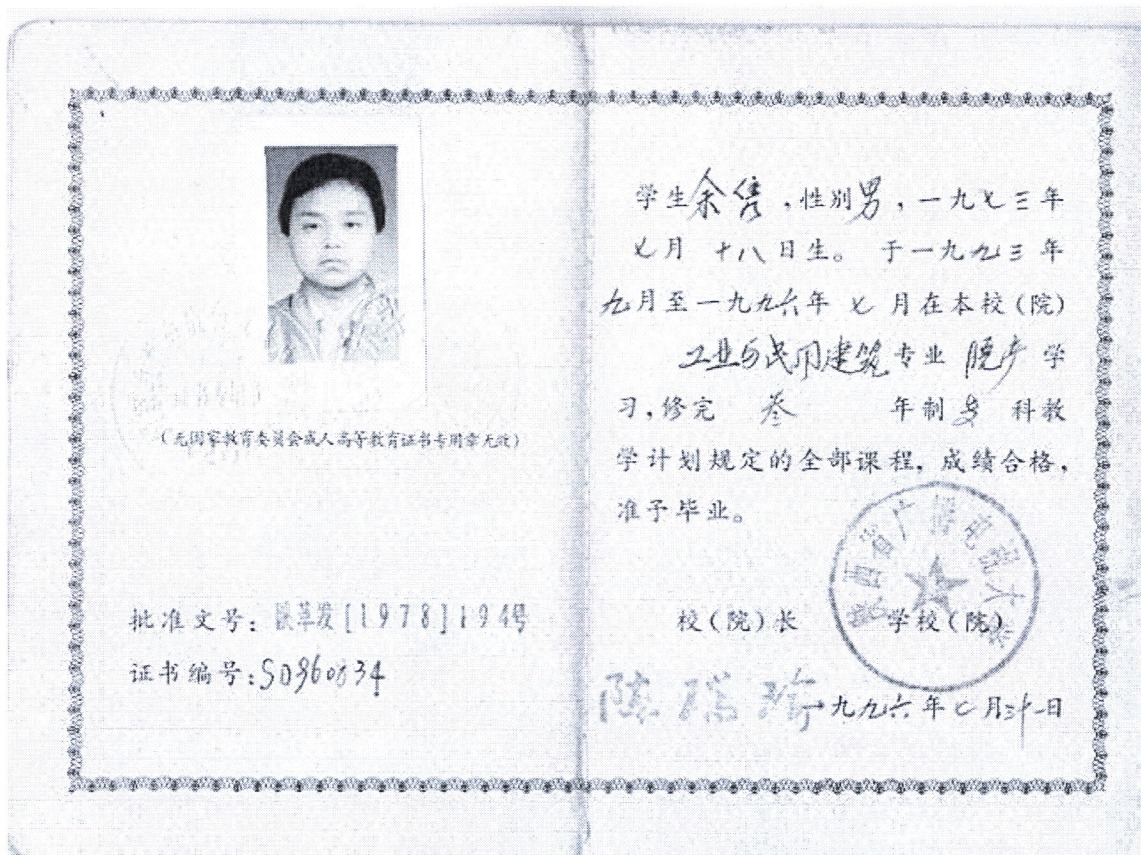 (无国家教育委员会成人高等教育证书专用章无效)
批准文号:陕革发[1978]194号
证书编号:SD960634
学生余隽,性别男,一九七三年
七月 十八日生。于一九九三年
九月至一九九六年 七月在本校(院)
工业与民用建筑专业 脱产 学
习,修完 叁 年制专科教
学计划规定的全部课程,成绩合格,
准予毕业。
陕西省广播电视大学
校(院)长 学校(院)
陈 瑞
一九九六年七月三十一日